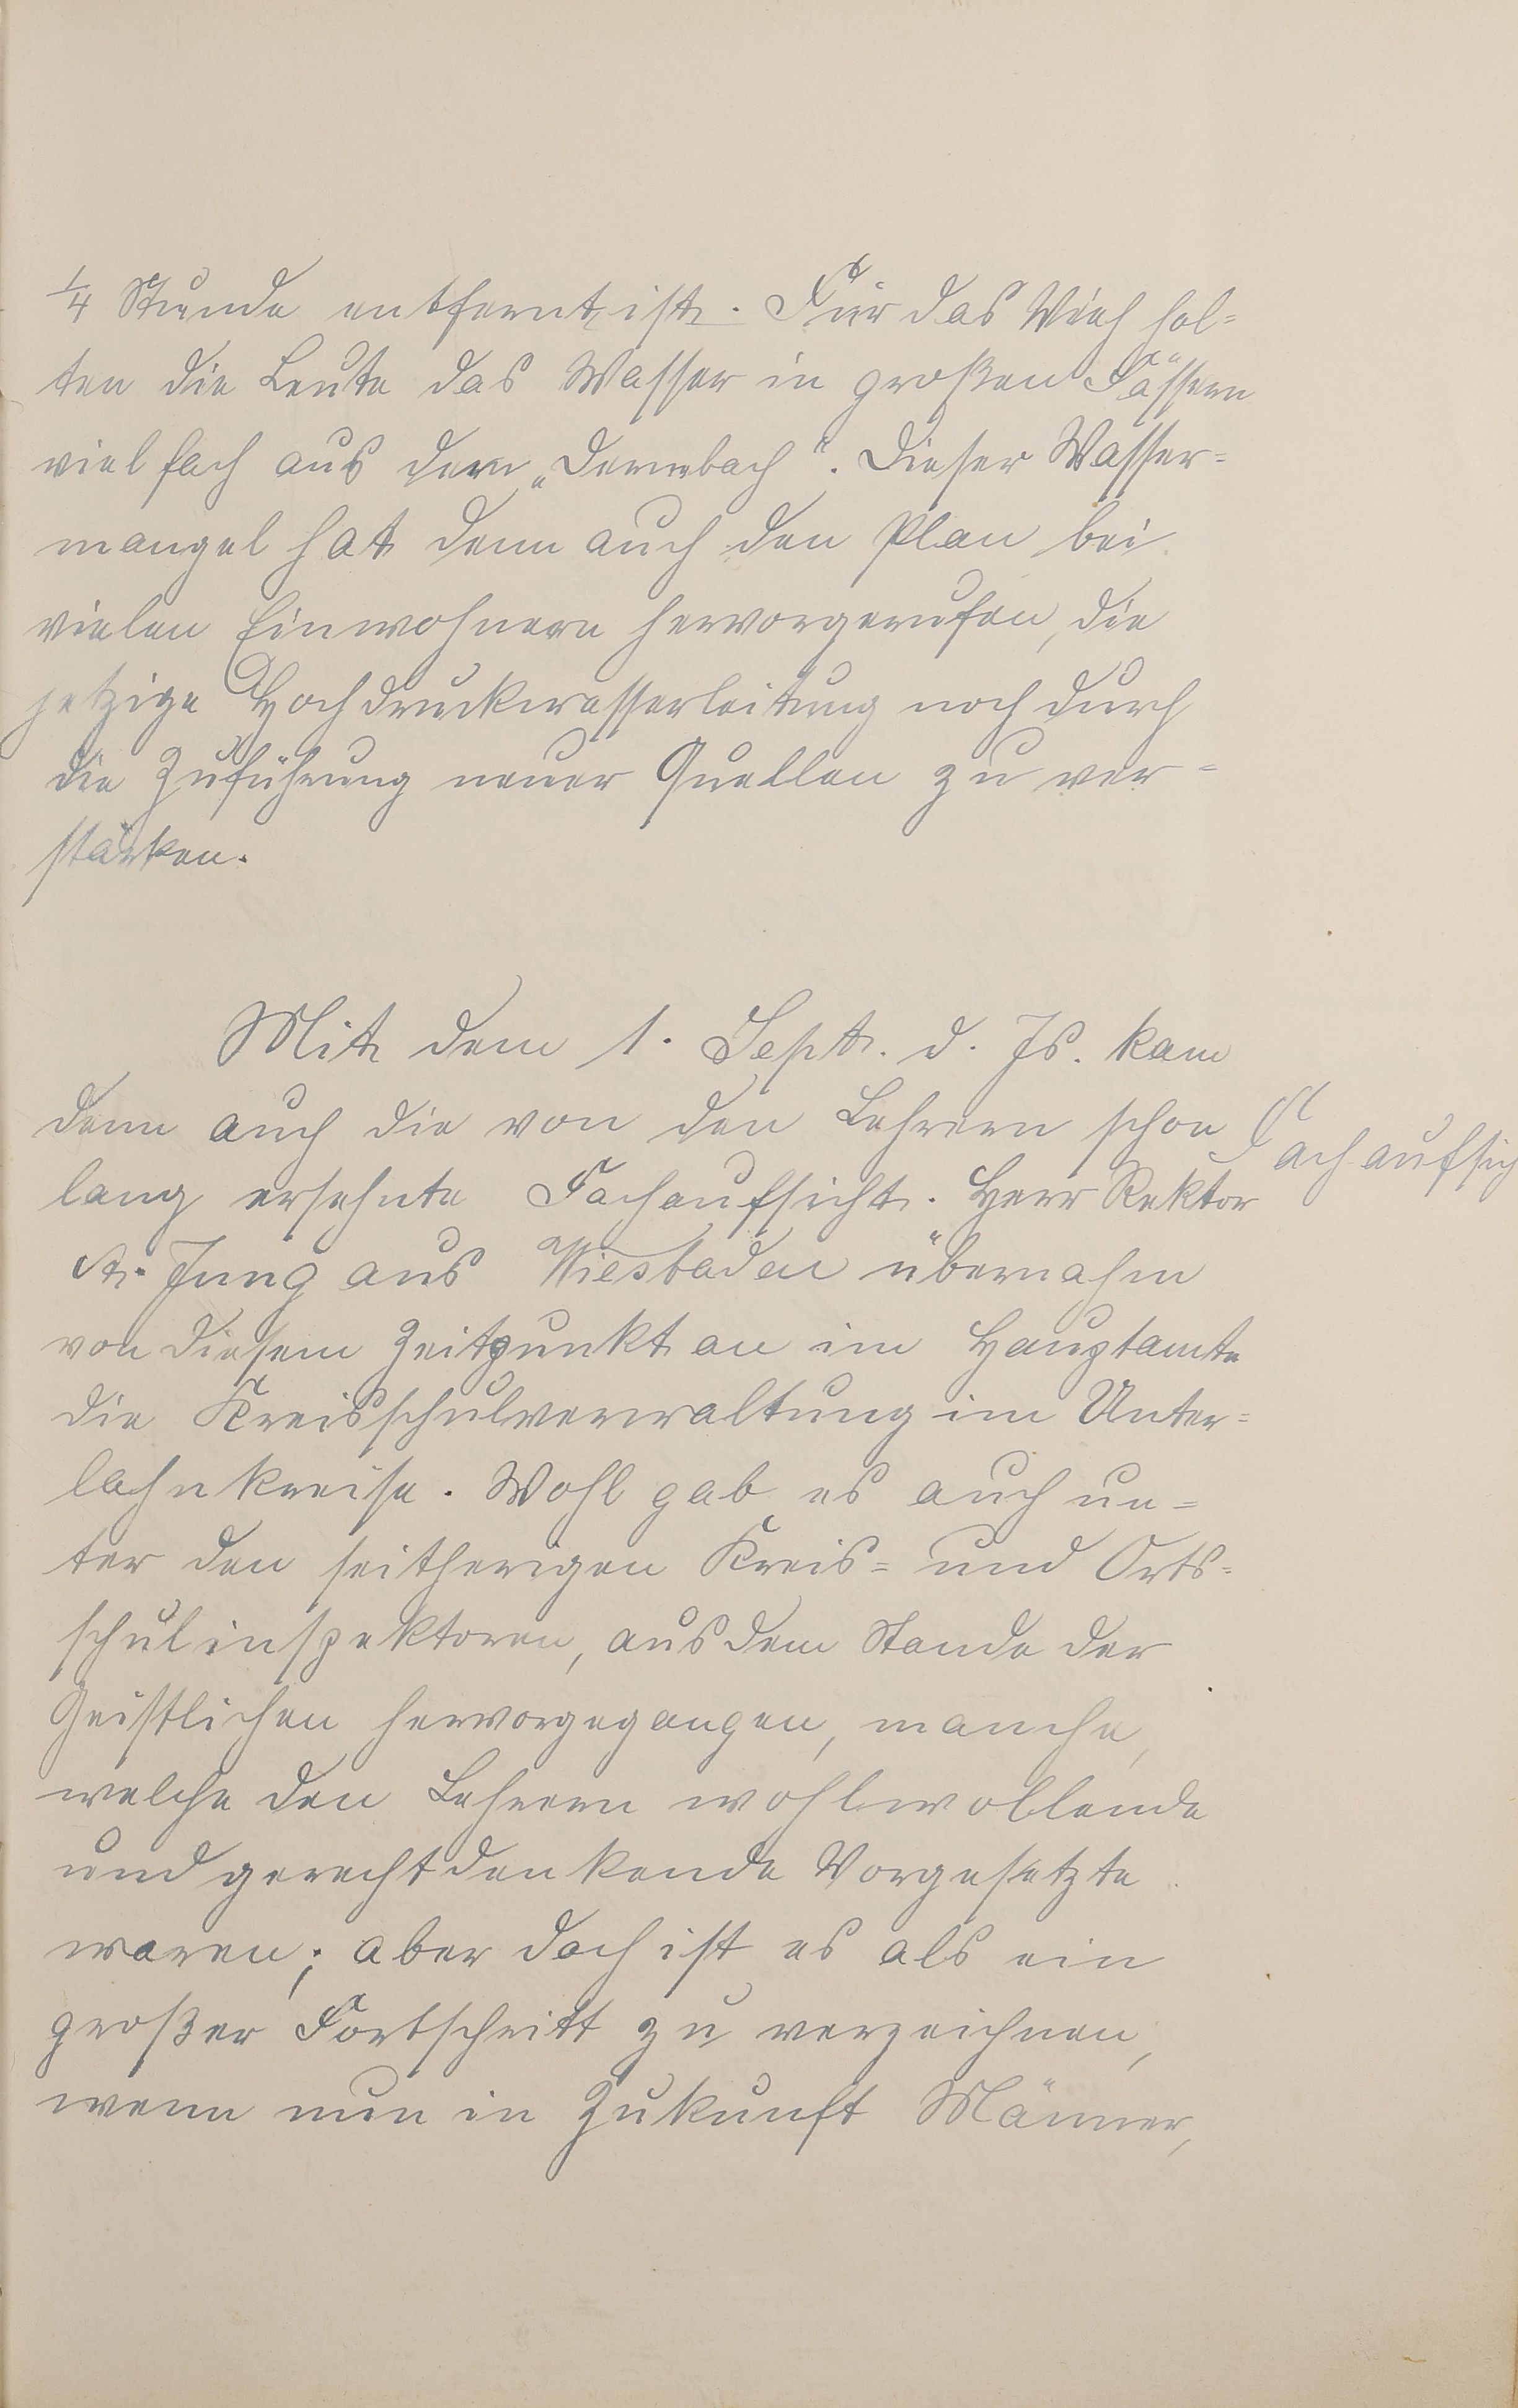 1/4 Stunde entfernt ist. Für das Vieh hol=
ten die Leute das Wasser in großen Fässern
vielfach aus dem „Dernbach“. Dieser Wasser=
mangel hat denn auch den Plan bei
vielen Einwohnern hervorgerufen, die
jetzige Hochdruckwasserleitung noch durch
die Zuführung neuer Quellen zu ver=
stärken.
Mit dem 1. Sept. d. Js. kam
denn auch die von den Lehrern schon
Fachaufsich
lang ersehnte Fachaufsicht. Herr Rektor
A. Jung aus Wiesbaden übernahm
von diesem Zeitpunkt an im Hauptamte
die Kreisschulverwaltung im Unter=
lahnkreise. Wohl gab es auch un=
ter den seitherigen Kreis= und Orts=
schulinspektoren, aus dem Stande der
Geistlichen hervorgegangen, manche,
welche den Lehrern wohlwollende
und gerechtdenkende Vorgesetzte
waren; aber doch ist es als ein
großer Fortschritt zu verzeichnen,
wenn nun in Zukunft Männer,